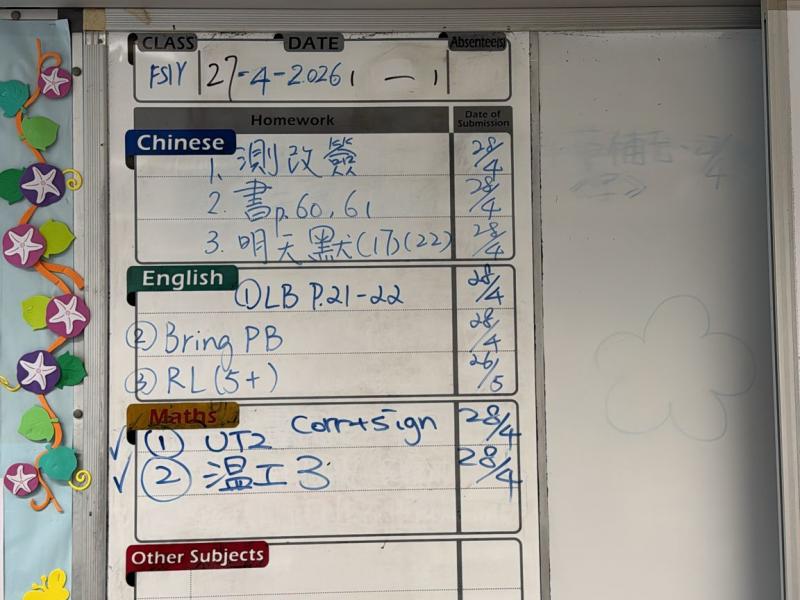 CLASS DATE Absentee(s)
27-4-2026 (一)
Homework Date of Submission
Chinese
1. 測改簽 28/4
2. 書p.60,61 28/4
3. 明天默(17)(22) 28/4
English
①LB P.21-22 28/4
② Bring PB 28/4
③ RL (5+) 26/5
Maths
① UT2 Corr+sign 28/4
② 温工3 28/4
Other Subjects